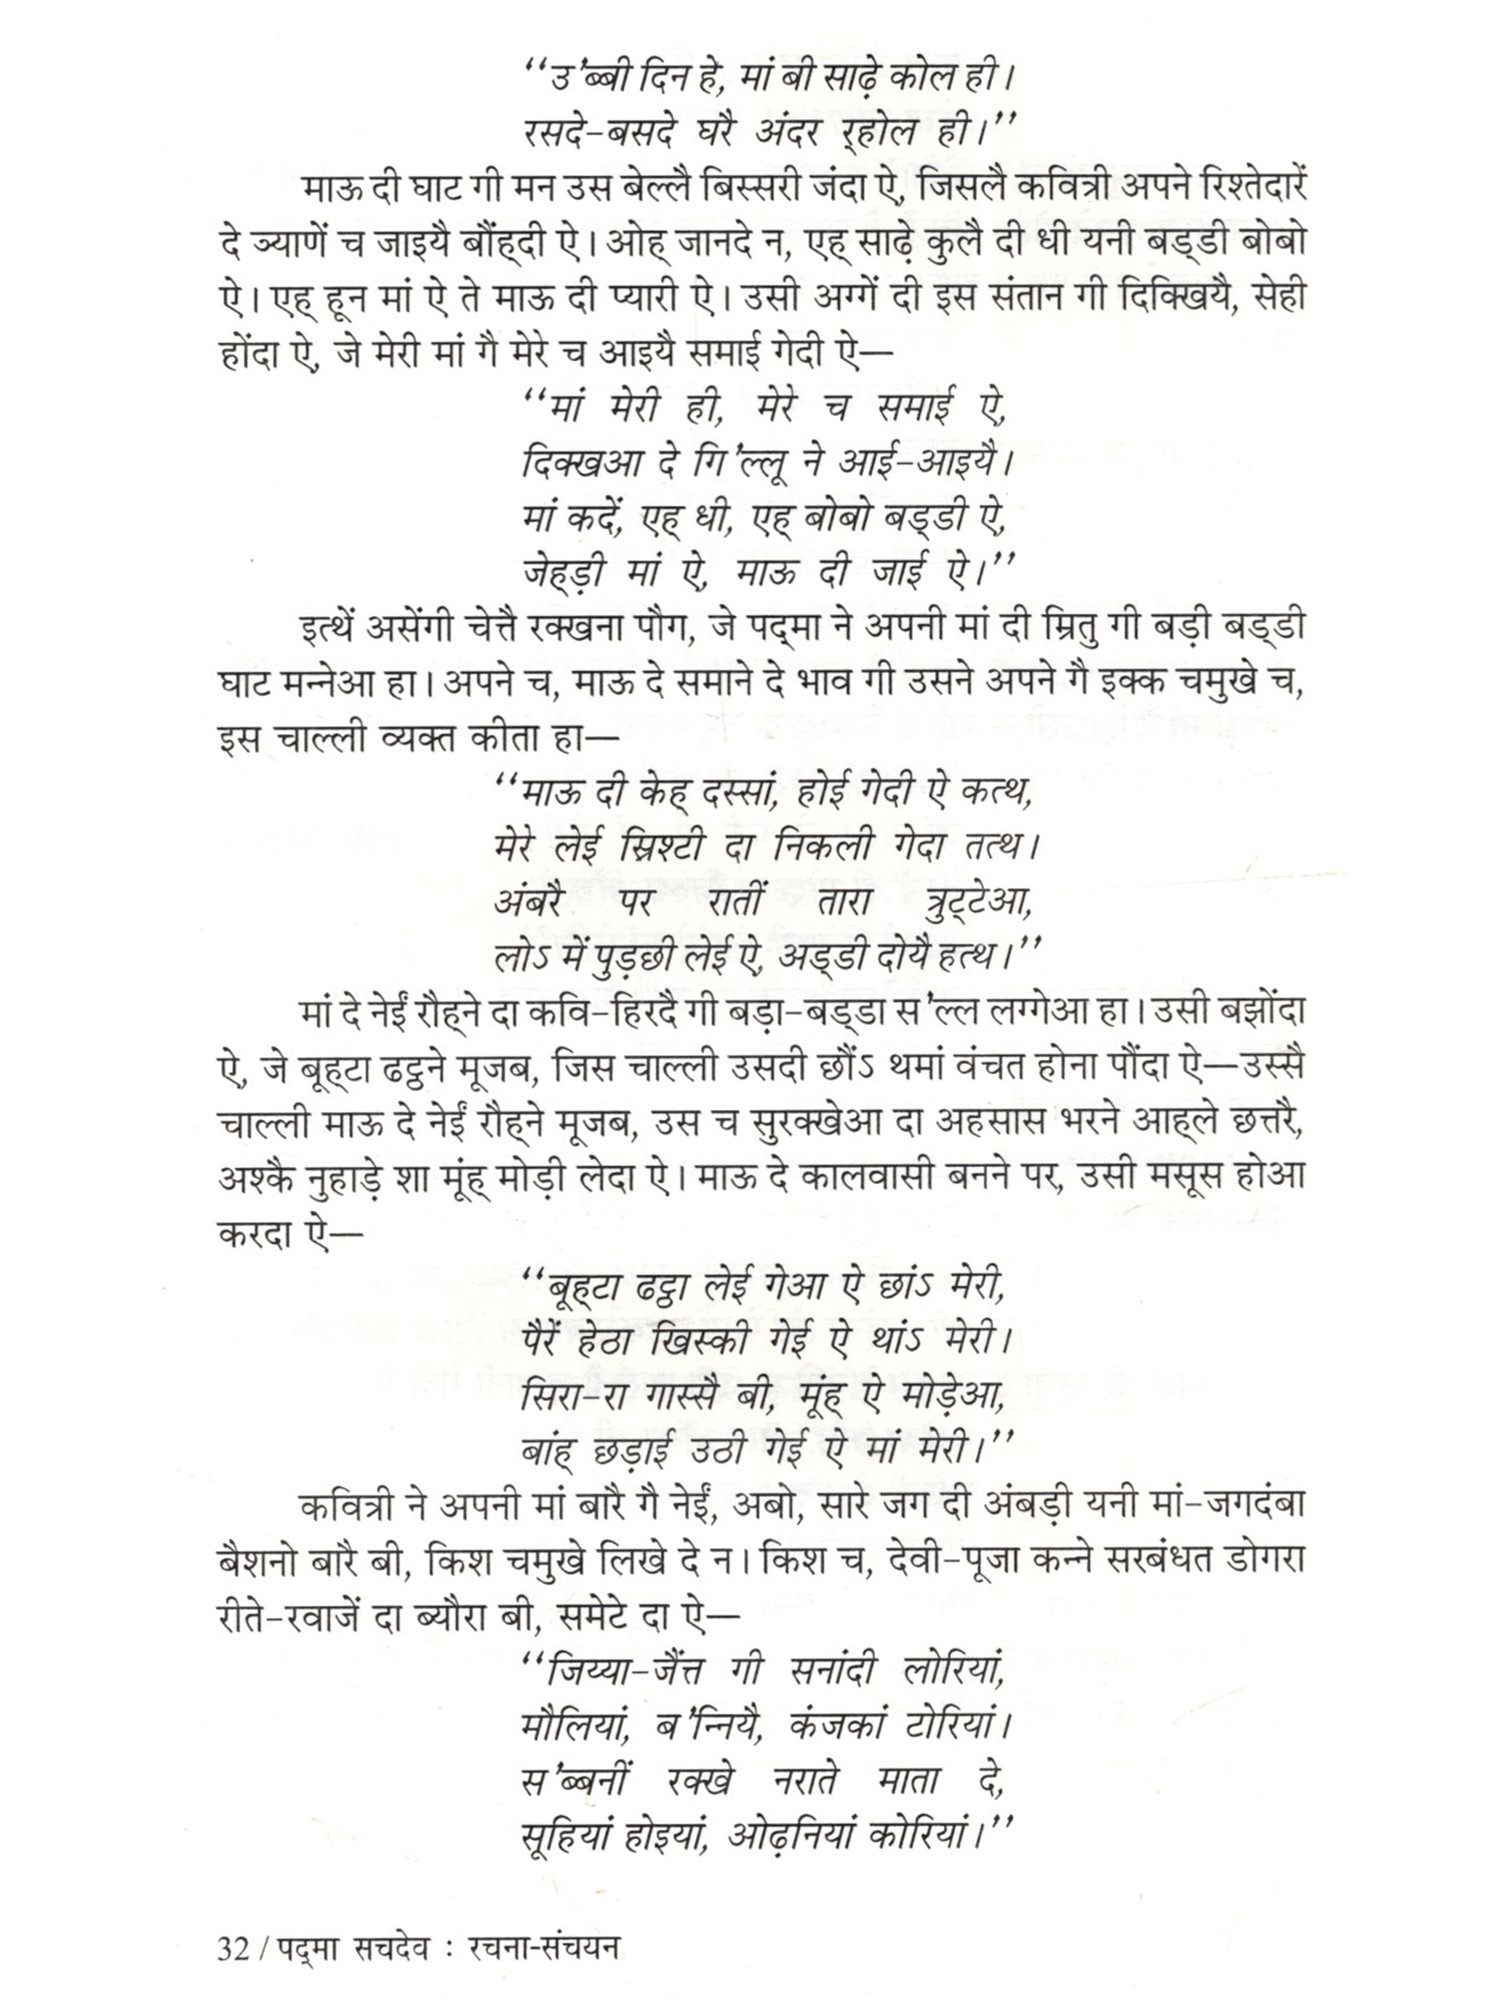 “उ’ब्बी दिन हे, मां बी साढ़े कोल ही।
रसदे-बसदे घरै अंदर र्‌होल ही।”
माऊ दी घाट गी मन उस बेल्लै बिस्सरी जंदा ऐ, जिसलै कवित्री अपने रिश्तेदारें
दे ञ्याणें च जाइयै बौंह्‌दी ऐ। ओह् जानदे न, एह् साढ़े कुलै दी धी यनी बड्‌डी बोबो
ऐ। एह् हून मां ऐ ते माऊ दी प्यारी ऐ। उसी अग्गें दी इस संतान गी दिक्खियै, सेही
होंदा ऐ, जे मेरी मां गै मेरे च आइयै समाई गेदी ऐ—
“मां मेरी ही, मेरे च समाई ऐ,
दिक्खआ दे गि’ल्लू ने आई-आइयै।
मां कदें, एह् धी, एह् बोबो बड्‌डी ऐ,
जेह्‌ड़ी मां ऐ, माऊ दी जाई ऐ।”
इत्थें असेंगी चेत्तै रक्खना पौग, जे पद्‌मा ने अपनी मां दी म्रितु गी बड़ी बड्‌डी
घाट मन्नेआ हा। अपने च, माऊ दे समाने दे भाव गी उसने अपने गै इक्क चमुखे च,
इस चाल्ली व्यक्त कीता हा—
“माऊ दी केह् दस्सां, होई गेदी ऐ कत्थ,
मेरे लेई स्रिश्टी दा निकली गेदा तत्थ।
अंबरै पर रातीं तारा त्रुट्‌टेआ,
लोऽ में पुड़छी लेई ऐ, अड्‌डी दोयै हत्थ।”
मां दे नेईं रौह्‌ने दा कवि-हिरदै गी बड़ा-बड्‌डा स’ल्ल लग्गेआ हा। उसी बझोंदा
ऐ, जे बूह्‌टा ढट्ठने मूजब, जिस चाल्ली उसदी छौंऽ थमां वंचत होना पौंदा ऐ—उस्सै
चाल्ली माऊ दे नेईं रौह्‌ने मूजब, उस च सुरक्खेआ दा अहसास भरने आह्‌ले छत्तरै,
अश्कै नुहाड़े शा मूंह् मोड़ी लेदा ऐ। माऊ दे कालवासी बनने पर, उसी मसूस होआ
करदा ऐ—
“बूह्‌टा ढट्ठा लेई गेआ ऐ छांऽ मेरी,
पैरें हेठा खिस्की गेई ऐ थांऽ मेरी।
सिरा-रा गास्सै बी, मूंह् ऐ मोड़ेआ,
बांह् छड़ाई उठी गेई ऐ मां मेरी।”
कवित्री ने अपनी मां बारै गै नेईं, अबो, सारे जग दी अंबड़ी यनी मां-जगदंबा
बैशनो बारै बी, किश चमुखे लिखे दे न। किश च, देवी-पूजा कन्ने सरबंधत डोगरा
रीते-रवाजें दा ब्यौरा बी, समेटे दा ऐ—
“जिय्या-जैंत्त गी सनांदी लोरियां,
मौलियां, ब’न्नियै, कंजकां टोरियां।
स’ब्बनीं रक्खे नराते माता दे,
सूहियां होइयां, ओढ़नियां कोरियां।”
32 / पद्‌मा सचदेव : रचना-संचयन